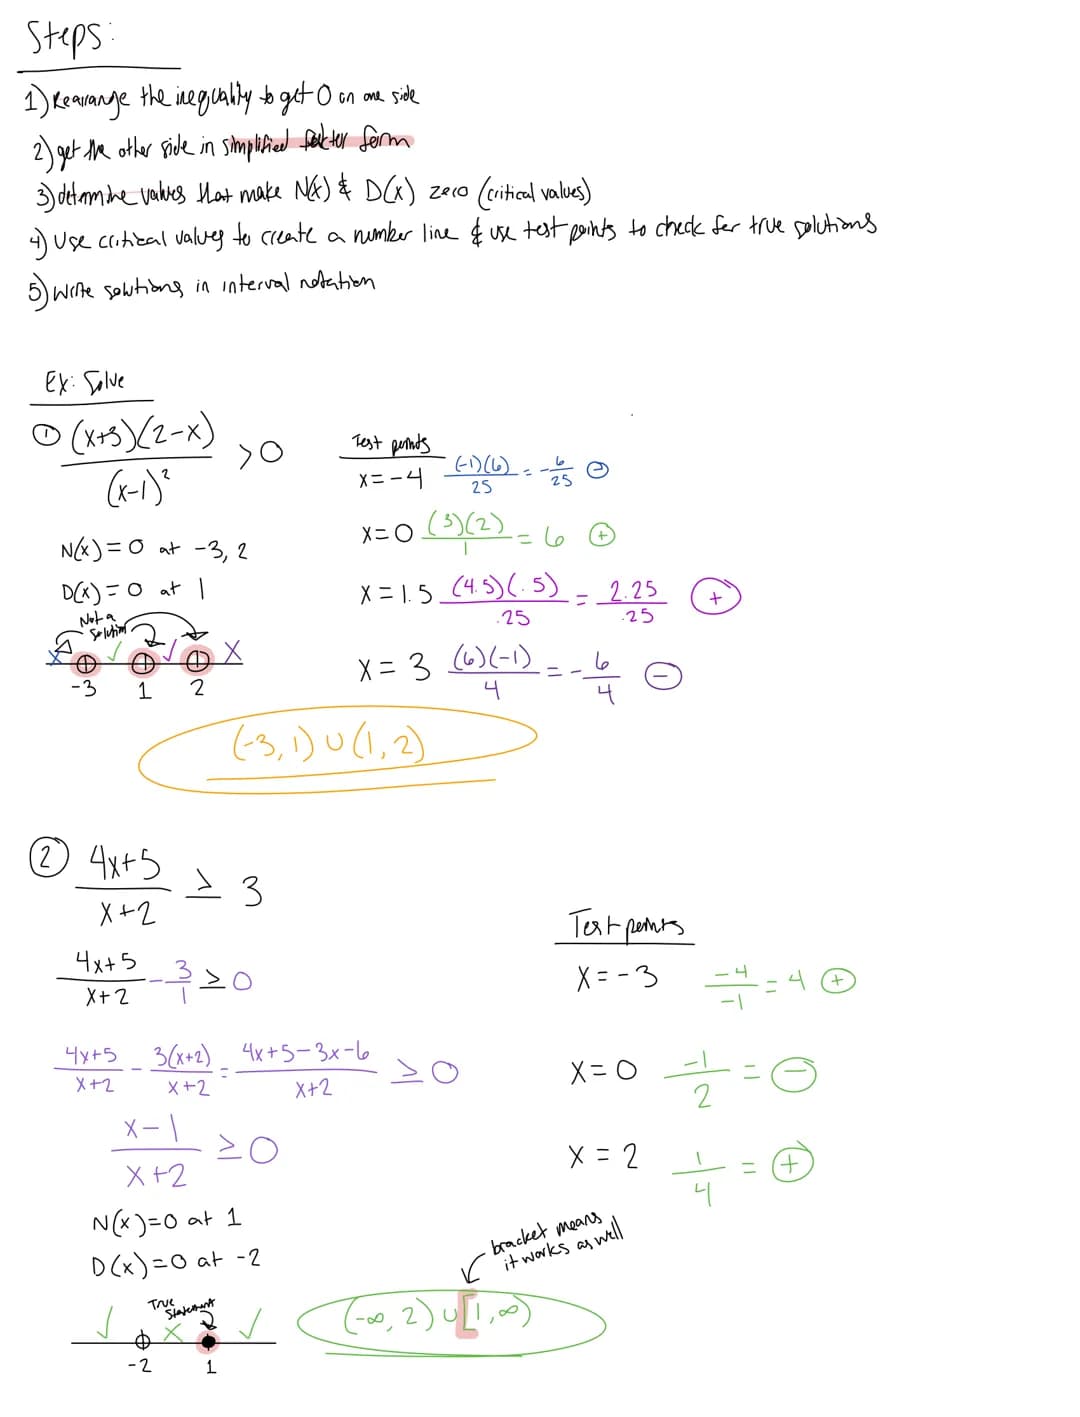 Steps:
1) Rearrange the inequality to get 0 on one side
2) get the other side in simplified factor form
3) determine values that make N(x) & D(x) zero (critical values)
4) Use critical values to create a number line & use test points to check for true solutions
5) Write solutions in interval notation
Ex: Solve
① (x+3)(2-x) / (x-1)² > 0
N(x)=0 at -3, 2
D(x)=0 at 1
Not a
solution
x ✓ ✓ x
-3 1 2
Test points
x=-4 (-1)(6)/25 = -6/25 ⊖
x=0 (3)(2)/1 = 6 ⊕
x=1.5 (4.5)(.5)/.25 = 2.25/.25 ⊕
x=3 (6)(-1)/4 = -6/4 ⊖
(-3,1) ∪ (1,2)
② 4x+5 / x+2 ≥ 3
4x+5 / x+2 - 3/1 ≥ 0
4x+5 / x+2 - 3(x+2) / x+2 = 4x+5-3x-6 / x+2 ≥ 0
x-1 / x+2 ≥ 0
N(x)=0 at 1
D(x)=0 at -2
True
Statement
✓ x ✓
-2 1
Test points
x=-3 -4/-1 = 4 ⊕
x=0 -1/2 = ⊖
x=2 1/4 = ⊕
bracket means
it works as well
(-∞, 2) ∪ [1, ∞)